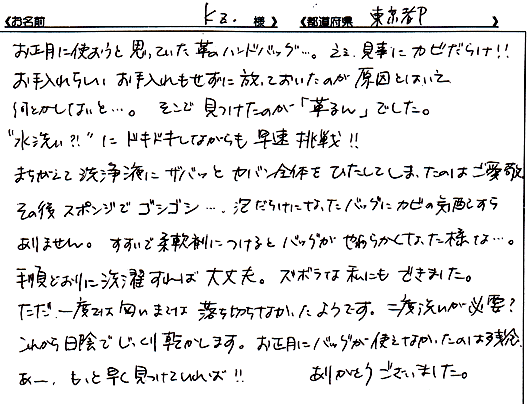 《お名前》 Kz. 様 》《都道府県 東京都 》
お正月に使おうと思っていた革のハンドバッグ…。ええ、見事にカビだらけ!!
お手入れらしいお手入れもせずに放っておいたのが原因とはいえ
何とかしないと…。そこで見つけたのが「革るん」でした。
"水洗い?!"にドキドキしながらも早速挑戦!!
まちがえて洗浄液にザバッとカバン全体をひたしてしまったのはご愛敬
その後スポンジでゴシゴシ…、泡だらけになったバッグにカビの気配すら
ありません。すすいで柔軟剤につけるとバッグがやわらかくなった様な…。
手順どおりに洗濯すれば大丈夫。ズボラな私にもできました。
ただ、一度では匂いまでは落ち切らなかったようです。二度洗いが必要?
これから日陰でじっくり乾かします。お正月にバッグが使えなかったのは残念
あー、もっと早く見つけていれば!! ありがとうございました。